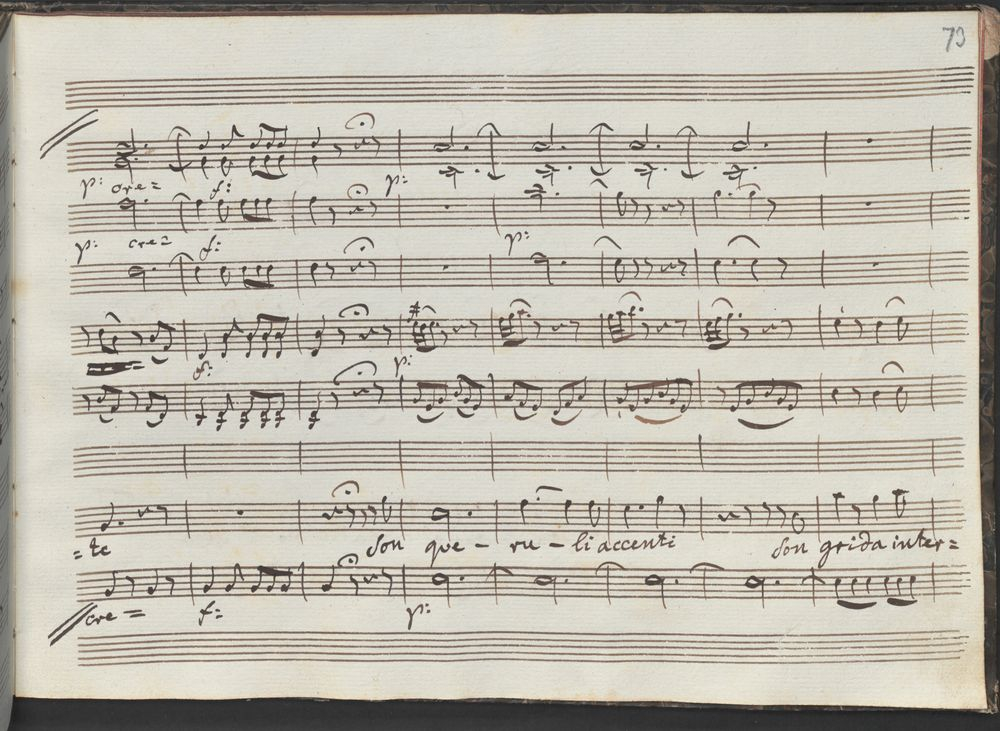 73
p: cre= f: p:
p: cre= f: p:
f: p:
=te son que - ru - li accenti son grida inter=
cre= f: p: